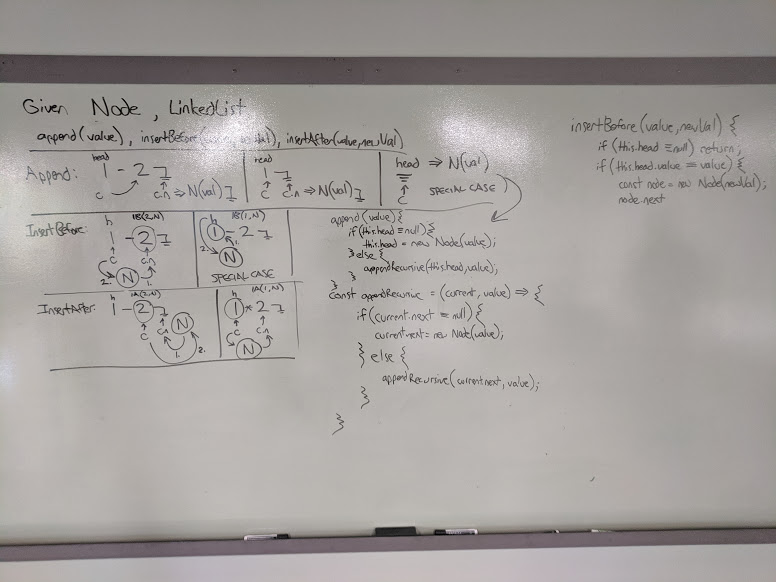 Given Node, LinkedList
append(value), insertBefore(value,newVal), insertAfter(value,newVal)
Append:
head
1 - 2
c c.n ⇒ N(val)
head
1
c c.n ⇒ N(val)
head ⇒ N(val)
c
SPECIAL CASE
InsertBefore:
h IB(2,N)
1 - 2
c c.n
2. N 1.
h IB(1,N)
1 - 2
2. 1.
N
SPECIAL CASE
InsertAfter:
h IA(2,N)
1 - 2
c c.n N
1. 2.
h IA(1,N)
1 2
c c.n
N
append(value){
if(this.head == null){
this.head = new Node(value);
}else{
appendRecursive(this.head,value);
}
const appendRecursive = (current, value) => {
if(current.next == null){
current.next = new Node(value);
} else {
appendRecursive(current.next, value);
}
}
insertBefore(value,newVal) {
if(this.head == null) return;
if(this.head.value == value) {
const node = new Node(newVal);
node.next